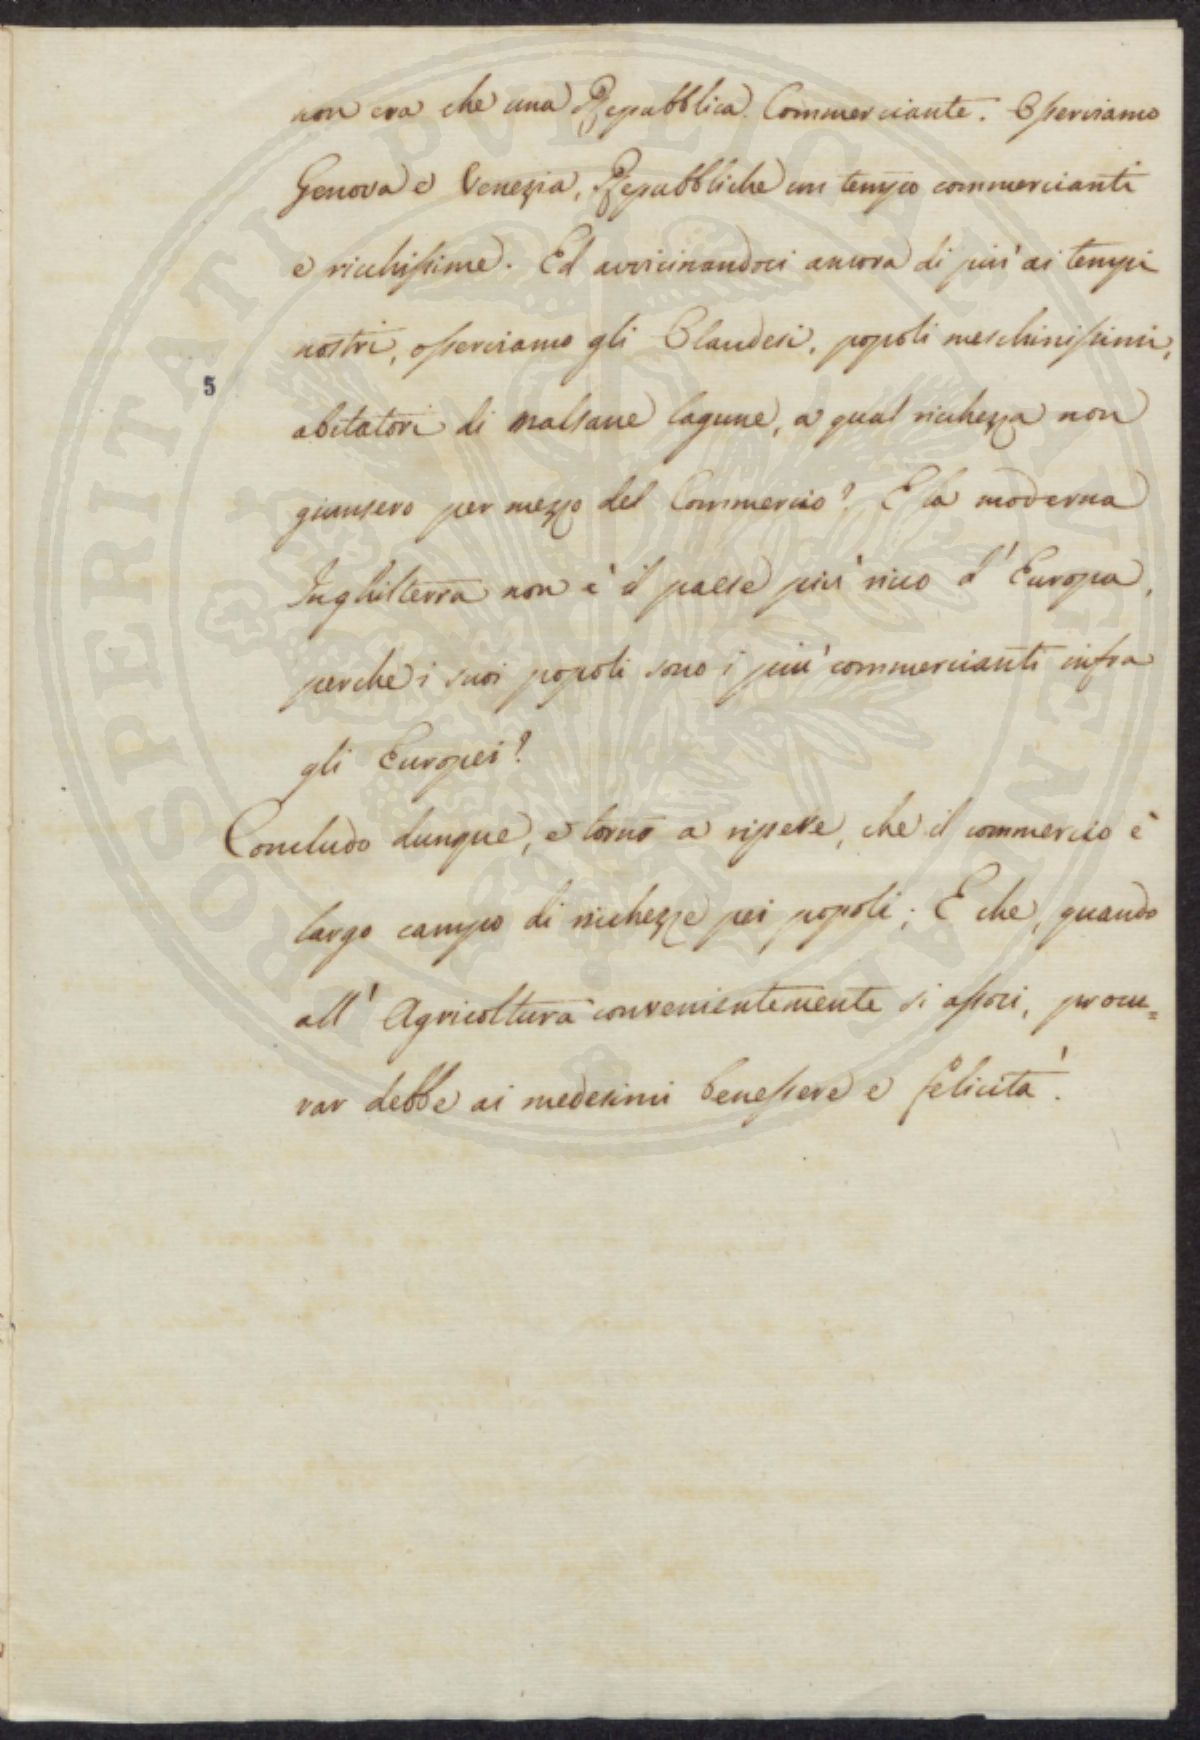 non era che una Repubblica Commerciante. Osserviamo
Genova e Venezia, Repubbliche un tempo commercianti
e ricchissime. Ed avvicinandoci ancora di più ai tempi
nostri, osserviamo gli Olandesi, popoli meschinissimi,
5
abitatori di malsane lagune, a qual ricchezza non
giunsero per mezzo del Commercio? E la moderna
Inghilterra non è il paese più ricco d'Europa,
perche i suoi popoli sono i più commercianti infra
gli Europei?
Concludo dunque, e torno a ripetere, che il commercio è
largo campo di ricchezze pei popoli; E che, quando
all'Agricoltura convenientemente si associ, procu=
rar debbe ai medesimi benessere e felicità.
PROSPERITATI PVBLICAE AVGENDAE